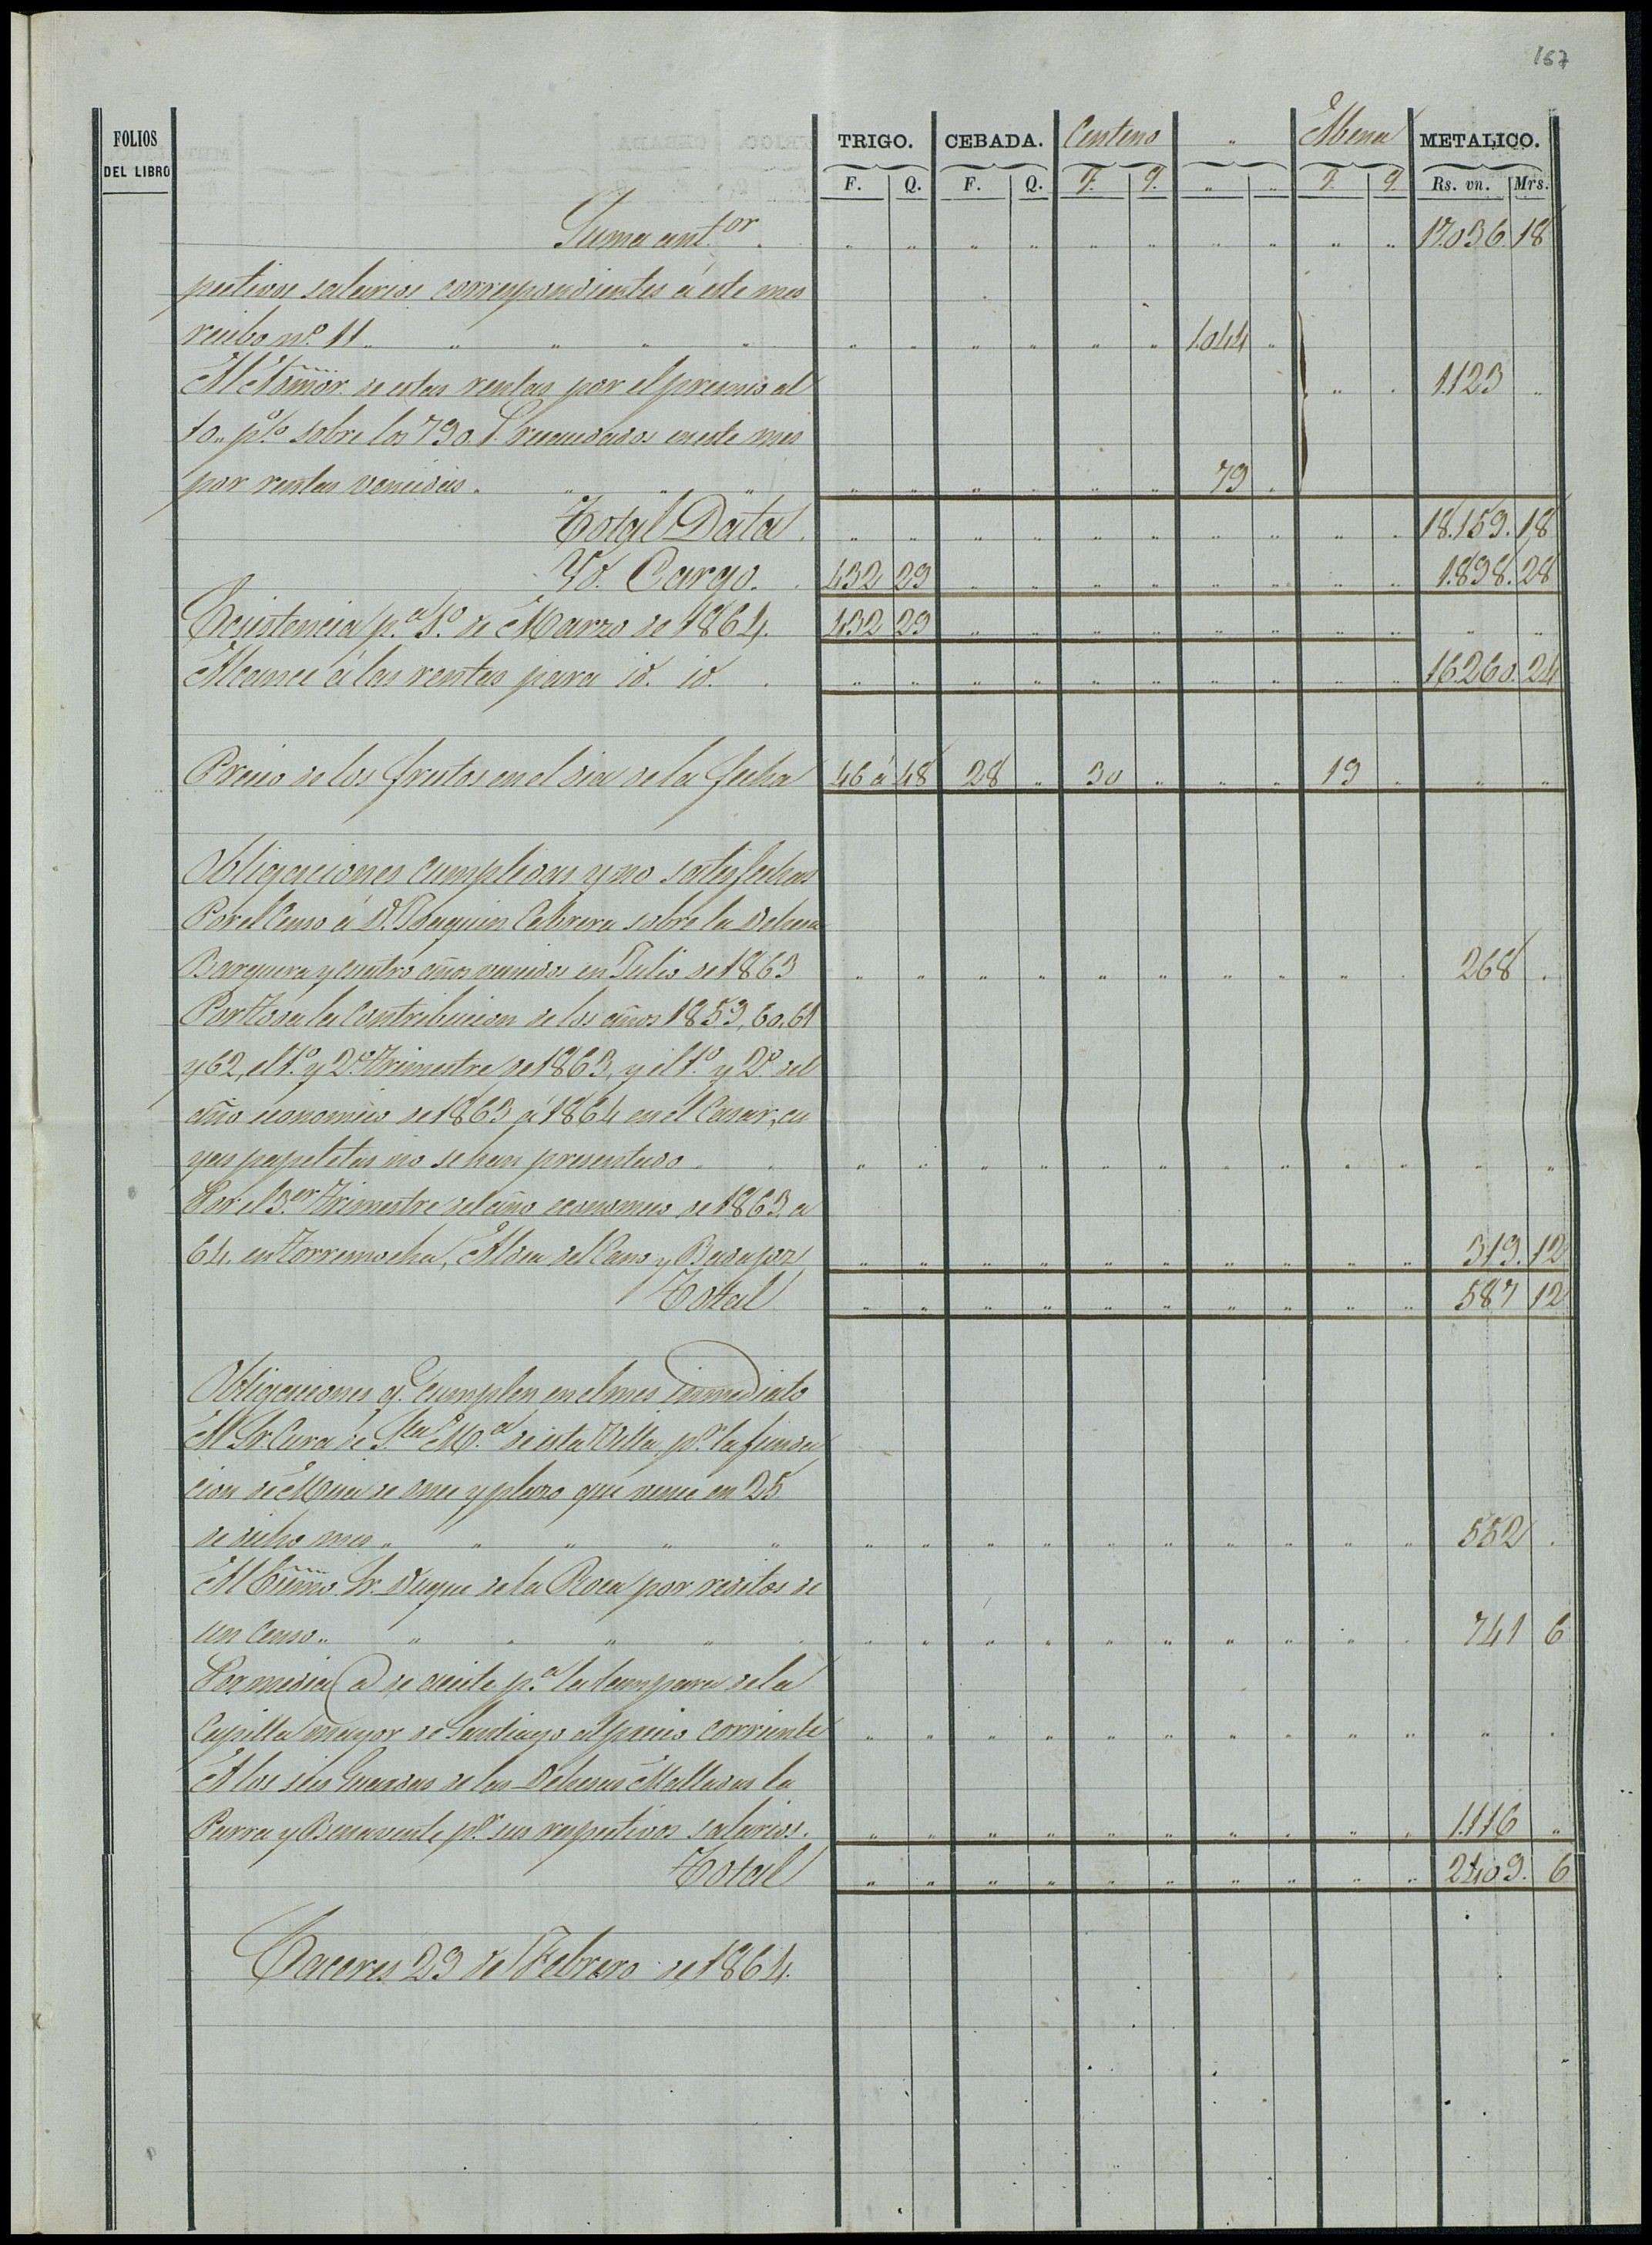 167
FOLIOS DEL LIBRO TRIGO. CEBADA. Centeno " Abena METALICO.
F. Q. F. Q. F. Q. " " F. Q. Rs. vn. Mrs.
Suma ant.or " " " " " " " " " " 17.036. 18
pectivos salarios correspondientes á este mes
recibo n.º 11 " " " " " " " " " " 1.044 "
Al Admor. de estas rentas por el premio al " " 1.123 "
10 " p.% sobre los 790. r. recaudados en este mes
por rentas vencidas " " " " " " " " " " 79 "
Total Data " " " " " " " " " " 18.159. 18
Yd. Cargo. 432 29 " " " " " " " " 1.898. 28
Ecsistencia p.a 1.º de Marzo de 1864. 432 29 " " " " " " " " " "
Alcance á las rentas para id. id. " " " " " " " " " " 16.260. 24
Precio de los frutos en el dia de la fecha 46 á 48 28 " 30 " " " 19 " " "
Obligaciones cumplidas y no satisfechas
Por el Censo á D. Joaquin Cabrera sobre la Dehesa
Barquera y cuatro años vencidos en Julio de 1863 " " " " " " " " " " 268 "
Por toda la Contribucion de los años 1859, 60, 61
y 62, el 1.º y 2.º trimestre de 1863, y el 1.º y 2.º del
año economico de 1863 á 1864 en el Casar, cu
yas papeletas no se han presentado " " " " " " " " " " " "
Por el 3.er trimestre del año economico de 1863 a
64. en Torremocha, Aldea del Cano y Badajoz " " " " " " " " " " 319. 12
Total " " " " " " " " " " 587 12
Obligaciones q.e cumplen en el mes inmediato
Al Sr. Cura de S.ta M.a de esta Villa, p.r la funda
cion de Misa de once y plazo que vence en 25
de dicho mes " " " " " " " " " " " " " " " 552 "
Al Exmo. Sr. Duque de la Roca por reditos de
un Censo " " " " " " " " " " " " " " " " 741 6
Por media @ de aceite p.a la lampara de la
Capilla mayor de Santiago al precio corriente " " " " " " " " " " " "
A los seis Guardas de las Dehesas Malladas la
Parra y Benavente, p.r sus respectivos salarios. " " " " " " " " " " 1.116 "
Total " " " " " " " " " " 2409. 6
Caceres 29 de Febrero de 1864.